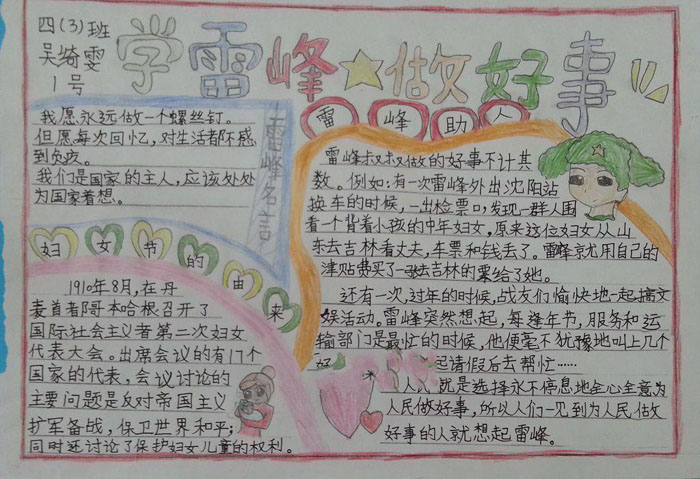 四(3)班
吴绮雯
1号
学雷峰做好事
雷峰名言
我愿永远做一个螺丝钉。
但愿每次回忆，对生活都不感
到负疚。
我们是国家的主人，应该处处
为国家着想。
雷峰助人
雷峰叔叔做的好事不计其
数。例如：有一次雷峰外出沈阳站
换车的时候，一出检票口，发现一群人围
看一个背着小孩的中年妇女，原来这位妇女从山
东去吉林看丈夫，车票和钱丢了。雷峰就用自己的
津贴费买了一张去吉林的票给了她。
还有一次，过年的时候，战友们愉快地一起搞文
娱活动。雷峰突然想起，每逢年节，服务和运
输部门是最忙的时候，他便毫不犹豫地叫上几个
好 起请假后去帮忙……
人人 就是选择永不停息地全心全意为
人民做好事，所以人们一见到为人民做
好事的人就想起雷峰。
妇女节的由来
1910年8月，在丹
麦首者阝哥本哈根召开了
国际社会主义者第二次妇女
代表大会。出席会议的有17个
国家的代表，会议讨论的
主要问题是反对帝国主义
扩军备战，保卫世界和平；
同时还讨论了保护妇女儿童的权利。